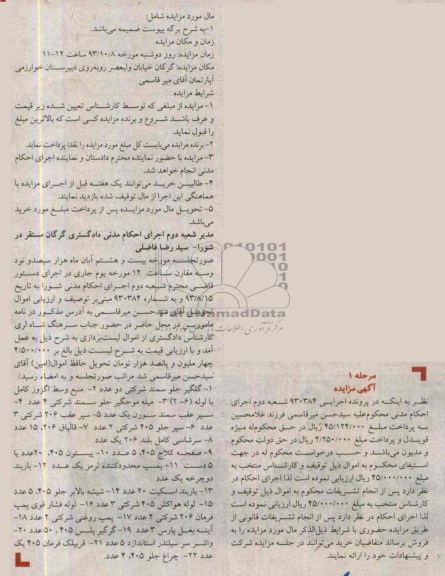 مرحله ۱
آگهی مزایده
نظر به اینکه در پرونده اجرایی ۹۳۰۳۸۴ شعبه دوم اجرای
احکام مدنی محکوم‌علیه سیدحسن میرقاسمی فرزند غلامحسین
به پرداخت مبلغ ۴۵/۱۲۴/۰۰۰ ریال در حق محکوم‌له منیژه
قویدل و پرداخت مبلغ ۲/۲۵۰/۰۰۰ ریال در حق دولت محکوم
و مدیون می‌باشد و حسب درخواست محکوم له در جهت
استیفای محکوم به اموال ذیل توقیف و کارشناس منتخب به
مبلغ ۴۵/۰۰۰/۰۰۰ ریال ارزیابی نموده است لذا اجرای احکام در
نظر دارد پس از انجام تشریفات محکوم به اموال ذیل توقیف و
کارشناس منتخب به مبلغ ۴۵/۰۰۰/۰۰۰ ریال ارزیابی نموده است
لذا اجرای احکام در نظر دارد پس از انجام تشریفات قانونی از
طریق مزایده حضوری با شرایط ذیل‌الذکر مال مورد مزایده را به
فروش برساند متقاضیان خرید می‌توانند در جلسه مزایده شرکت
و پیشنهادات خود را ارائه نمایند.
مال مورد مزایده شامل:
۱-به شرح برگه پیوست ضمیمه می‌باشد.
زمان و مکان مزایده
زمان مزایده: روز دوشنبه مورخه ۹۳/۱۰/۸ ساعت ۱۲-۱۱
مکان مزایده: گرگان خیابان ولیعصر روبه‌روی دبیرستان خوارزمی
آپارتمان آقای میر قاسمی
شرایط مزایده
۱- مزایده از مبلغی که توسط کارشناس تعیین شده زیر قیمت
و عرف باشد شروع و برنده مزایده کسی است که بالاترین مبلغ
را قبول نماید.
۲-برنده مزایده می‌بایست کل مبلغ مورد مزایده را نقدا پرداخت نماید.
۳-مزایده با حضور نماینده محترم دادستان و نماینده اجرای احکام
مدنی انجام خواهد شد.
۴- طالبین خرید می‌توانند یک هفته قبل از اجرای مزایده با
هماهنگی این اجرا از مال توقیف شده بازدید نمایند.
۵- تحویل مال مورد مزایده پس از پرداخت مبلغ مورد خرید
می‌باشد.
مدیر شعبه دوم اجرای احکام مدنی دادگستری گرگان مستقر در
شورا- سید رضا فاضلی
صورتجلسه مورخه بیست و هشتم آبان ماه هزار سیصدو نود
وسه مقارن ساعت ۱۲ مورخه یوم جاری در اجرای دستور
قاضی محترم شعبه دوم اجرای احکام مدنی شورا به تاریخ
۹۳/۸/۱۵ و به شماره ۹۳۰۳۸۴ مبنی‌بر توقیف و ارزیابی اموال
تحویل آقای سیدحسین میرقاسمی به آدرس مذکور در نامه
مامورین در محل حاضر در حضور جناب سرهنگ شاه لری
کارشناس دادگستری از اموال لیست‌برداری به شرح ذیل به عمل
آمد و با ارزیابی قیمت به شرح لیست ذیل بالغ بر ۴/۵۰۰/۰۰۰
چهار ملیون و پانصد هزار تومان تحویل حافظ اموال(امین) آقای
سیدحسن میرقاسمی شد مراتب صورتجلسه و به امضاء رسید/
۱- گلگیر جلو سمند شرکتی دو عدد ۲- منبع وسط اگزوز کامل
با لوله (۶-۲) ۳- میله موجگیر جلو سمند شرکتی ۴ عدد ۴-
سپر عقب سمند سورن یک عدد ۵- سپر عقب ۲۰۶ شرکتی ۳
عدد ۶- سپر جلو ۴۰۵ شرکتی ۲ عدد ۷- قالپاق ۲۰۶، ۱۵ عدد
۸- سرشاسی کامل بلند ۲۰۶ یک عدد
۹- صفحه کلاچ ۴۰۵، ۵ عدد ۱۰- پیستون ۴۰۵، ۲۰عدد یا
۵ دست ۱۱- پمپ محدودکننده ترمز یک عدد ۱۲- باربند
دوچرخه یک عدد
۱۳- باربند اسکیت ۲۰ عدد ۱۴- شیشه بالابر جلو ۴۰۵، ۵ عدد
۱۵- لوله هواکش ۴۰۵ شرکتی ۳ عدد ۱۶- لوله فشار قوی پمپ
فرمان ۲۰۶ شرکتی ۲ عدد ۱۷- پمپ روغنی شرکتی ۲ عدد ۱۸-
آینه بغل پارس ۳ عدد ۱۹- گوگیر پلیس ۴۰۵، ۵۰ عدد ۲۰-
واشر سر سیلندر استاندارد ۵ عدد ۲۱- قریبلک فرمان ۴۰۵ یک
عدد ۲۲- چراغ جلو ۴۰۵، ۴ عدد.